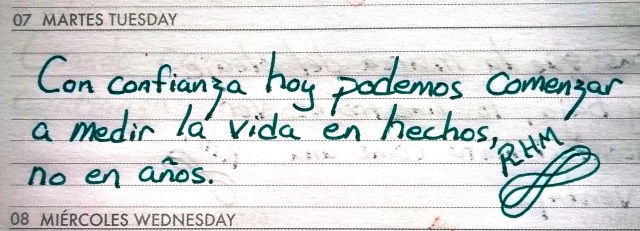 07 MARTES TUESDAY
Con confianza hoy podemos comenzar
a medir la vida en hechos,
no en años.
RHM
08 MIÉRCOLES WEDNESDAY